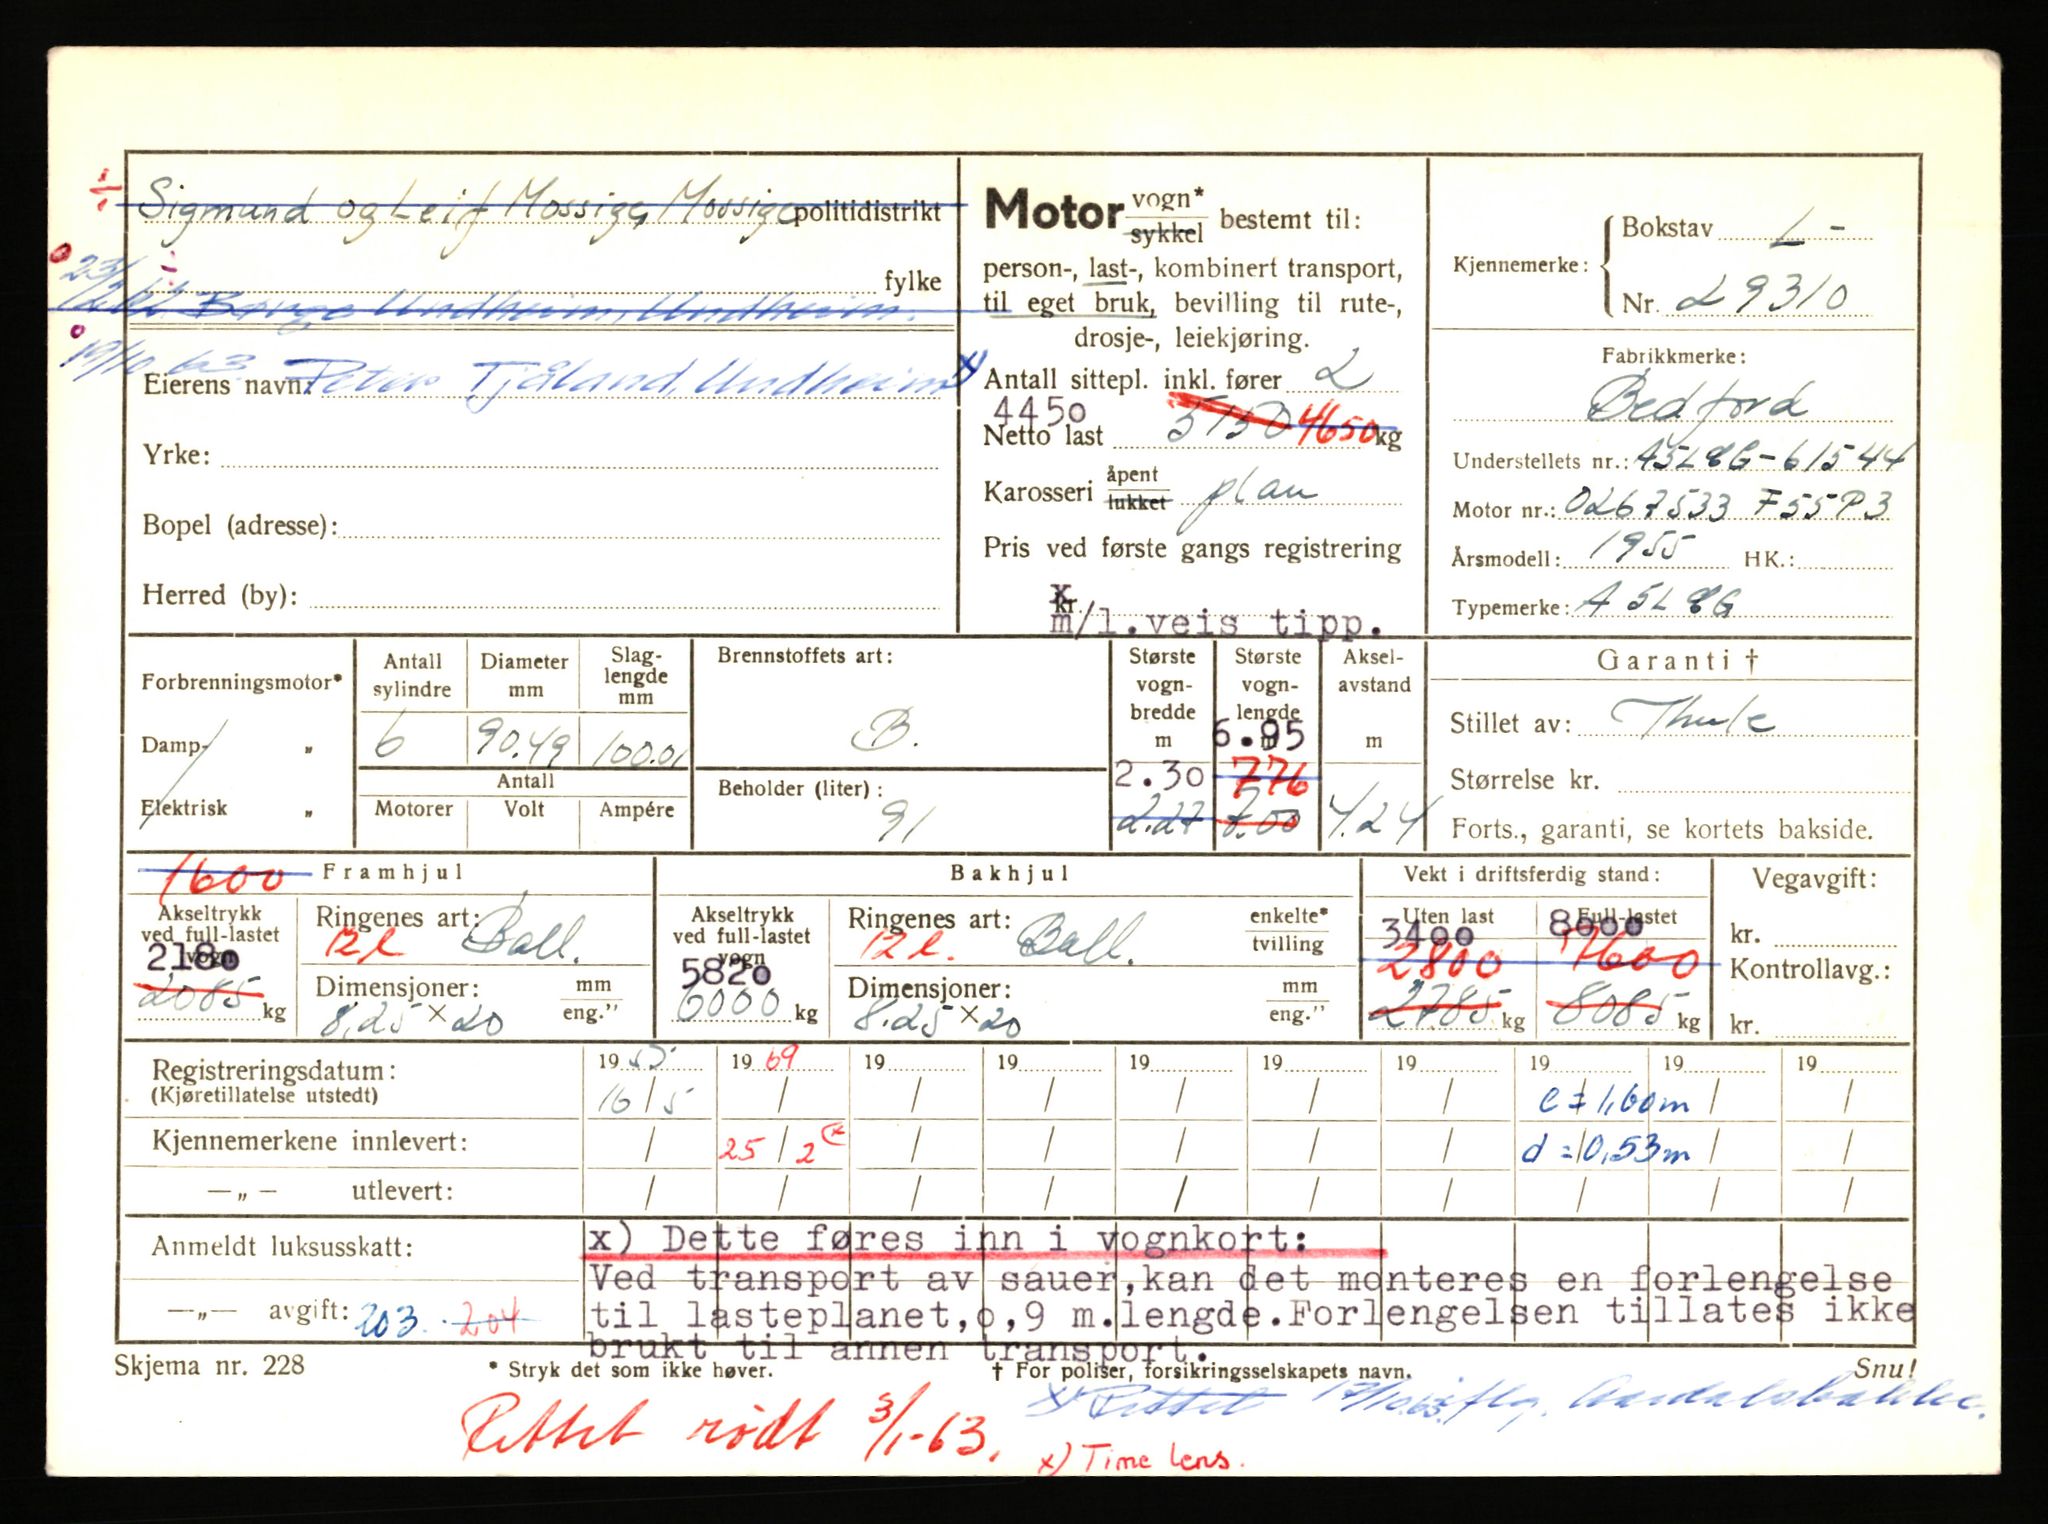 Sigmund og Leif Mossige, Mossige politidistrikt
fylke
Børge Undheim, Undheim.
19/10 63
Eierens navn: Peter Tjåland, Undheim x)
Yrke:
Bopel (adresse):
Herred (by):
Motor vogn* sykkel bestemt til:
person-, last-, kombinert transport,
til eget bruk, bevilling til rute-,
drosje-, leiekjøring.
Antall sittepl. inkl. fører 2
4450
Netto last 5130 4650 kg
Karosseri åpent lukket plan
Pris ved første gangs registrering
x
kr.
m/l.veis tipp.
Kjennemerke: Bokstav L-
Nr. 29310
Fabrikkmerke:
Bedford
Understellets nr.: A5L8G-61544
Motor nr.: 0267533 F55P3
Årsmodell: 1955 HK.:
Typemerke: A5L8G
Forbrenningsmotor*
Damp- „
Elektrisk „
Antall sylindre 6
Diameter mm 90.49
Slag-lengde mm 100.01
Antall
Motorer Volt Ampére
Brennstoffets art:
B.
Beholder (liter):
91
Største vogn-bredde m
2.30
2.27
Største vogn-lengde m
6.95
776
7.00
Aksel-avstand m
4.24
Garanti †
Stillet av: Thule
Størrelse kr.
Forts., garanti, se kortets bakside.
1600 Framhjul
Akseltrykk ved full-lastet vogn
2180
2085 kg
Ringenes art:
12 l Ball.
Dimensjoner: mm eng."
8.25 × 20
Bakhjul
Akseltrykk ved full-lastet vogn
5820
6000 kg
Ringenes art: enkelte* tvilling
12 l. Ball.
Dimensjoner: mm eng."
8.25 × 20
Vekt i driftsferdig stand:
Uten last Full-lastet
3400 8000
2800 7600
2785 kg 8085 kg
Vegavgift:
kr.
Kontrollavg.:
kr.
Registreringsdatum: 1955 1969 19 19 19 19 19 19 19 19
(Kjøretillatelse utstedt) 16/5 / / / / / / e = 1,60m / /
Kjennemerkene innlevert: / 25/2 (x / / / / / d = 0,53m / /
—„— utlevert: / / / / / / / / / /
Anmeldt luksusskatt:
—„— avgift: 203. 204
x) Dette føres inn i vognkort:
Ved transport av sauer,kan det monteres en forlengelse
til lasteplanet,o,9 m.lengde.Forlengelsen tillates ikke
brukt til annen transport.
Skjema nr. 228 * Stryk det som ikke høver. † For poliser, forsikringsselskapets navn. Snu!
x) Rettet 17/10.63. iflg.
Rettet rødt 3/1-63.
x) Time lens.